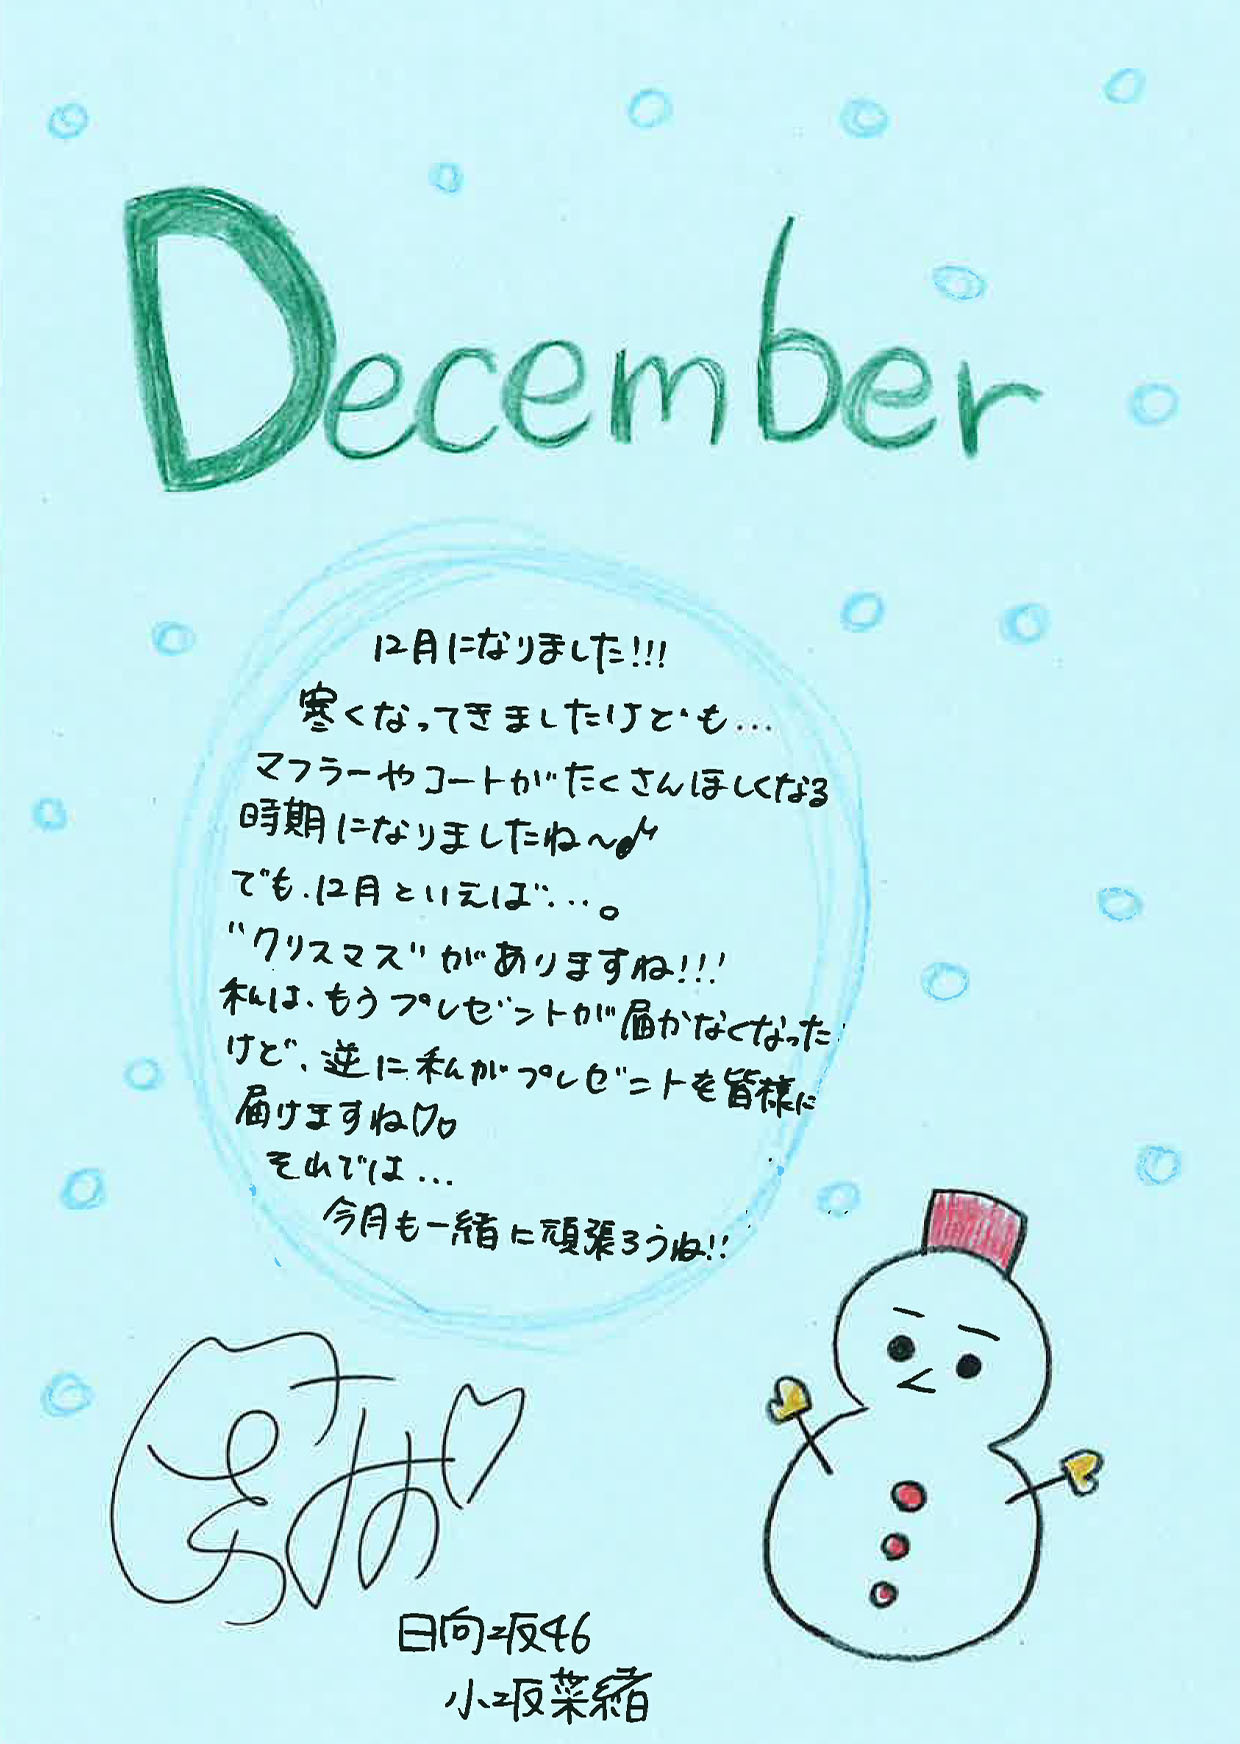 December
12月になりました!!!
寒くなってきましたけども…
マフラーやコートがたくさんほしくなる
時期になりましたね〜♪
でも、12月といえば…。
"クリスマス"がありますね!!!
私は、もうプレゼントが届かなくなった
けど、逆に私がプレゼントを皆様に
届けますね♡♡
それでは…
今月も一緒に頑張ろうね!!
日向坂46
小坂菜緒